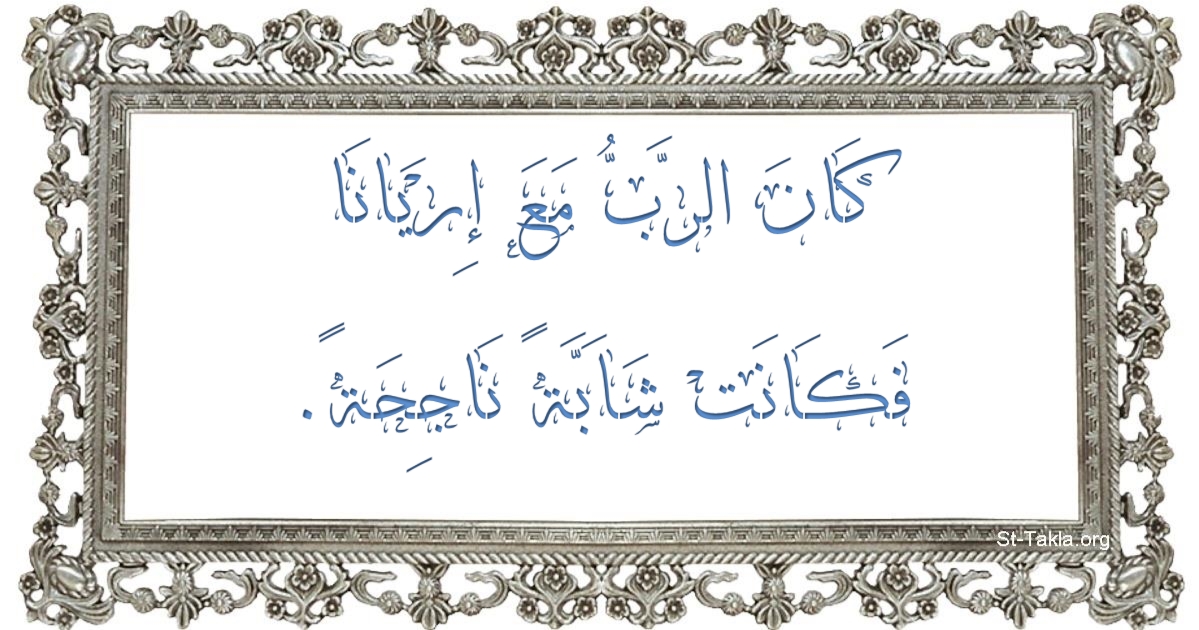 كَانَ الرَّبُّ مَعَ إِرِيَانَا
فَكَانَت شَابَّةً نَاجِحَةً.
St-Takla.org